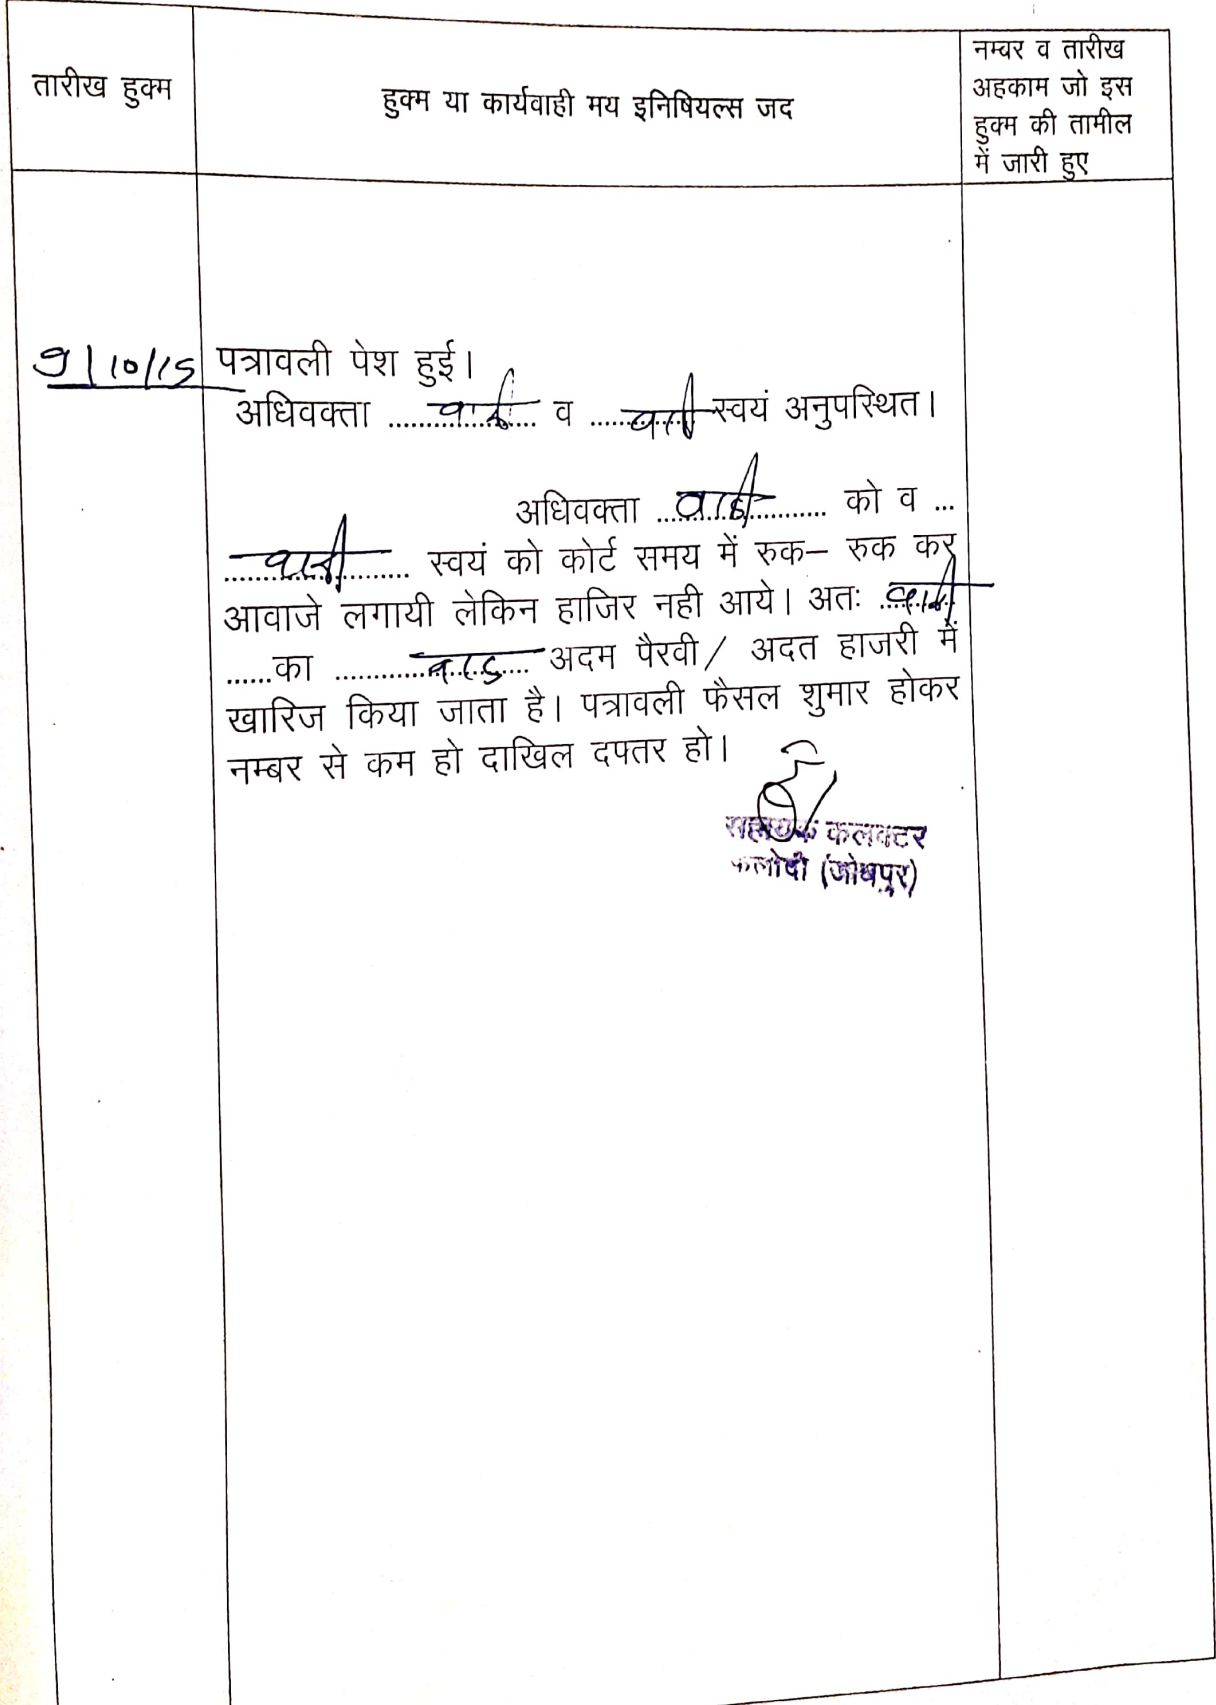 तारीख हुक्म
हुक्म या कार्यवाही मय इनिषियल्स जद
नम्बर व तारीख
अहकाम जो इस
हुक्म की तामील
में जारी हुए
9/10/15
पत्रावली पेश हुई।
अधिवक्ता ........वादी........ व ........वादी स्वयं अनुपस्थित।
अधिवक्ता ........वादी........ को व ...
........वादी........ स्वयं को कोर्ट समय में रुक– रुक कर
आवाजे लगायी लेकिन हाजिर नही आये। अतः ....वादी....
......का ........वाद........ अदम पैरवी/ अदत हाजरी में
खारिज किया जाता है। पत्रावली फैसल शुमार होकर
नम्बर से कम हो दाखिल दपतर हो।
सहायक कलक्टर
फलोदी (जोधपुर)